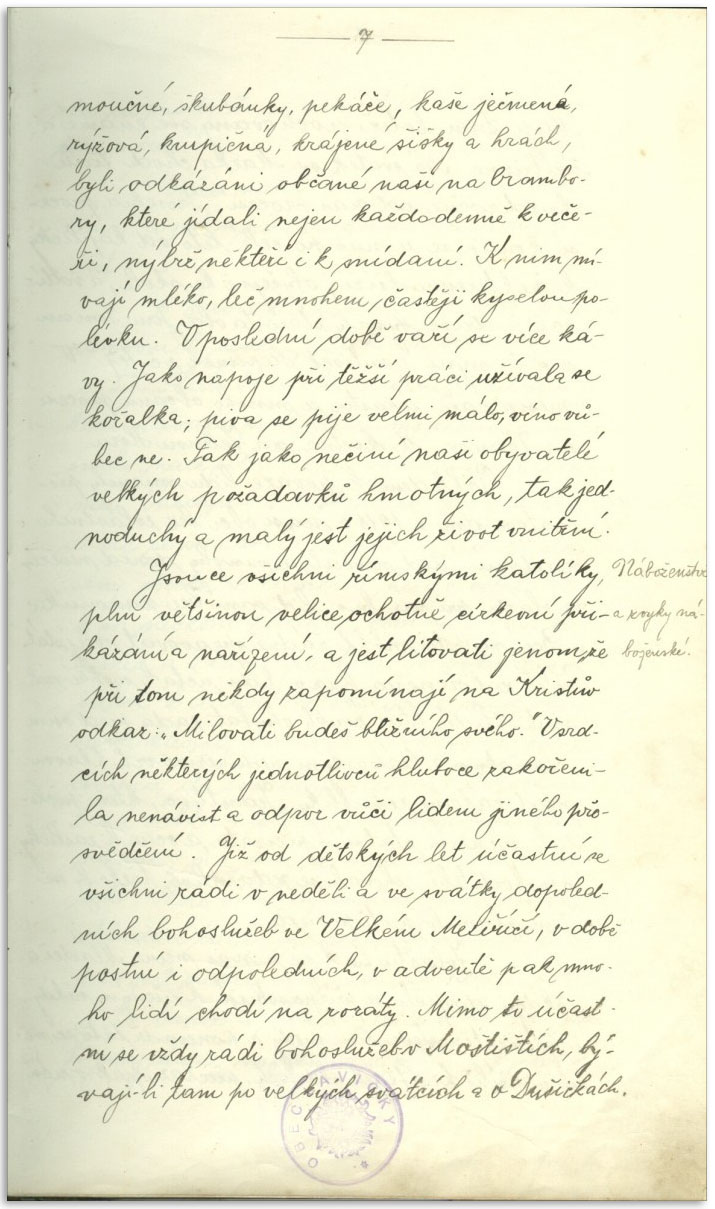 7
moučné, škubánky, pekáče, kaše ječmená,
rýžová, krupičná, krájené šišky a hrách,
byli odkázáni občané naši na brambo-
ry, které jídali nejen každodenně k veče-
ři, nýbrž někteří i k snídaní. K nim mí-
vají mléko, leč mnohem častěji kyselou po-
lévku. V poslední době vaří se více ká-
vy. Jako nápoje při těžší práci užívala se
kořalka; piva se pije velmi málo, víno vů-
bec ne. Tak jako nečiní naši obyvatelé
velkých požadavků hmotných, tak jed-
noduchý a malý jest jejich život vnitřní.
Jsouce všichni římskými katolíky,
Náboženství
plní většinou velice ochotně církevní při-
a zvyky ná-
kázání a nařízení, a jest litovati jenom, že
boženské.
při tom někdy zapomínají na Kristův
odkaz: „Milovati budeš bližního svého." V srd-
cích některých jednotlivců hluboce zakořeni-
la nenávist a odpor vůči lidem jiného pře-
svědčení. Již od dětských let účastní se
všichni rádi v neděli a ve svátky dopoled-
ních bohoslužeb ve Velkém Meziříčí, v době
postní i odpoledních, v adventě pak mno-
ho lidí chodí na roráty. Mimo to účast-
ní se vždy rádi bohoslužeb v Mostištích, bý-
vají-li tam po velkých svátcích a o Dušičkách.
OBEC LAVIČKY